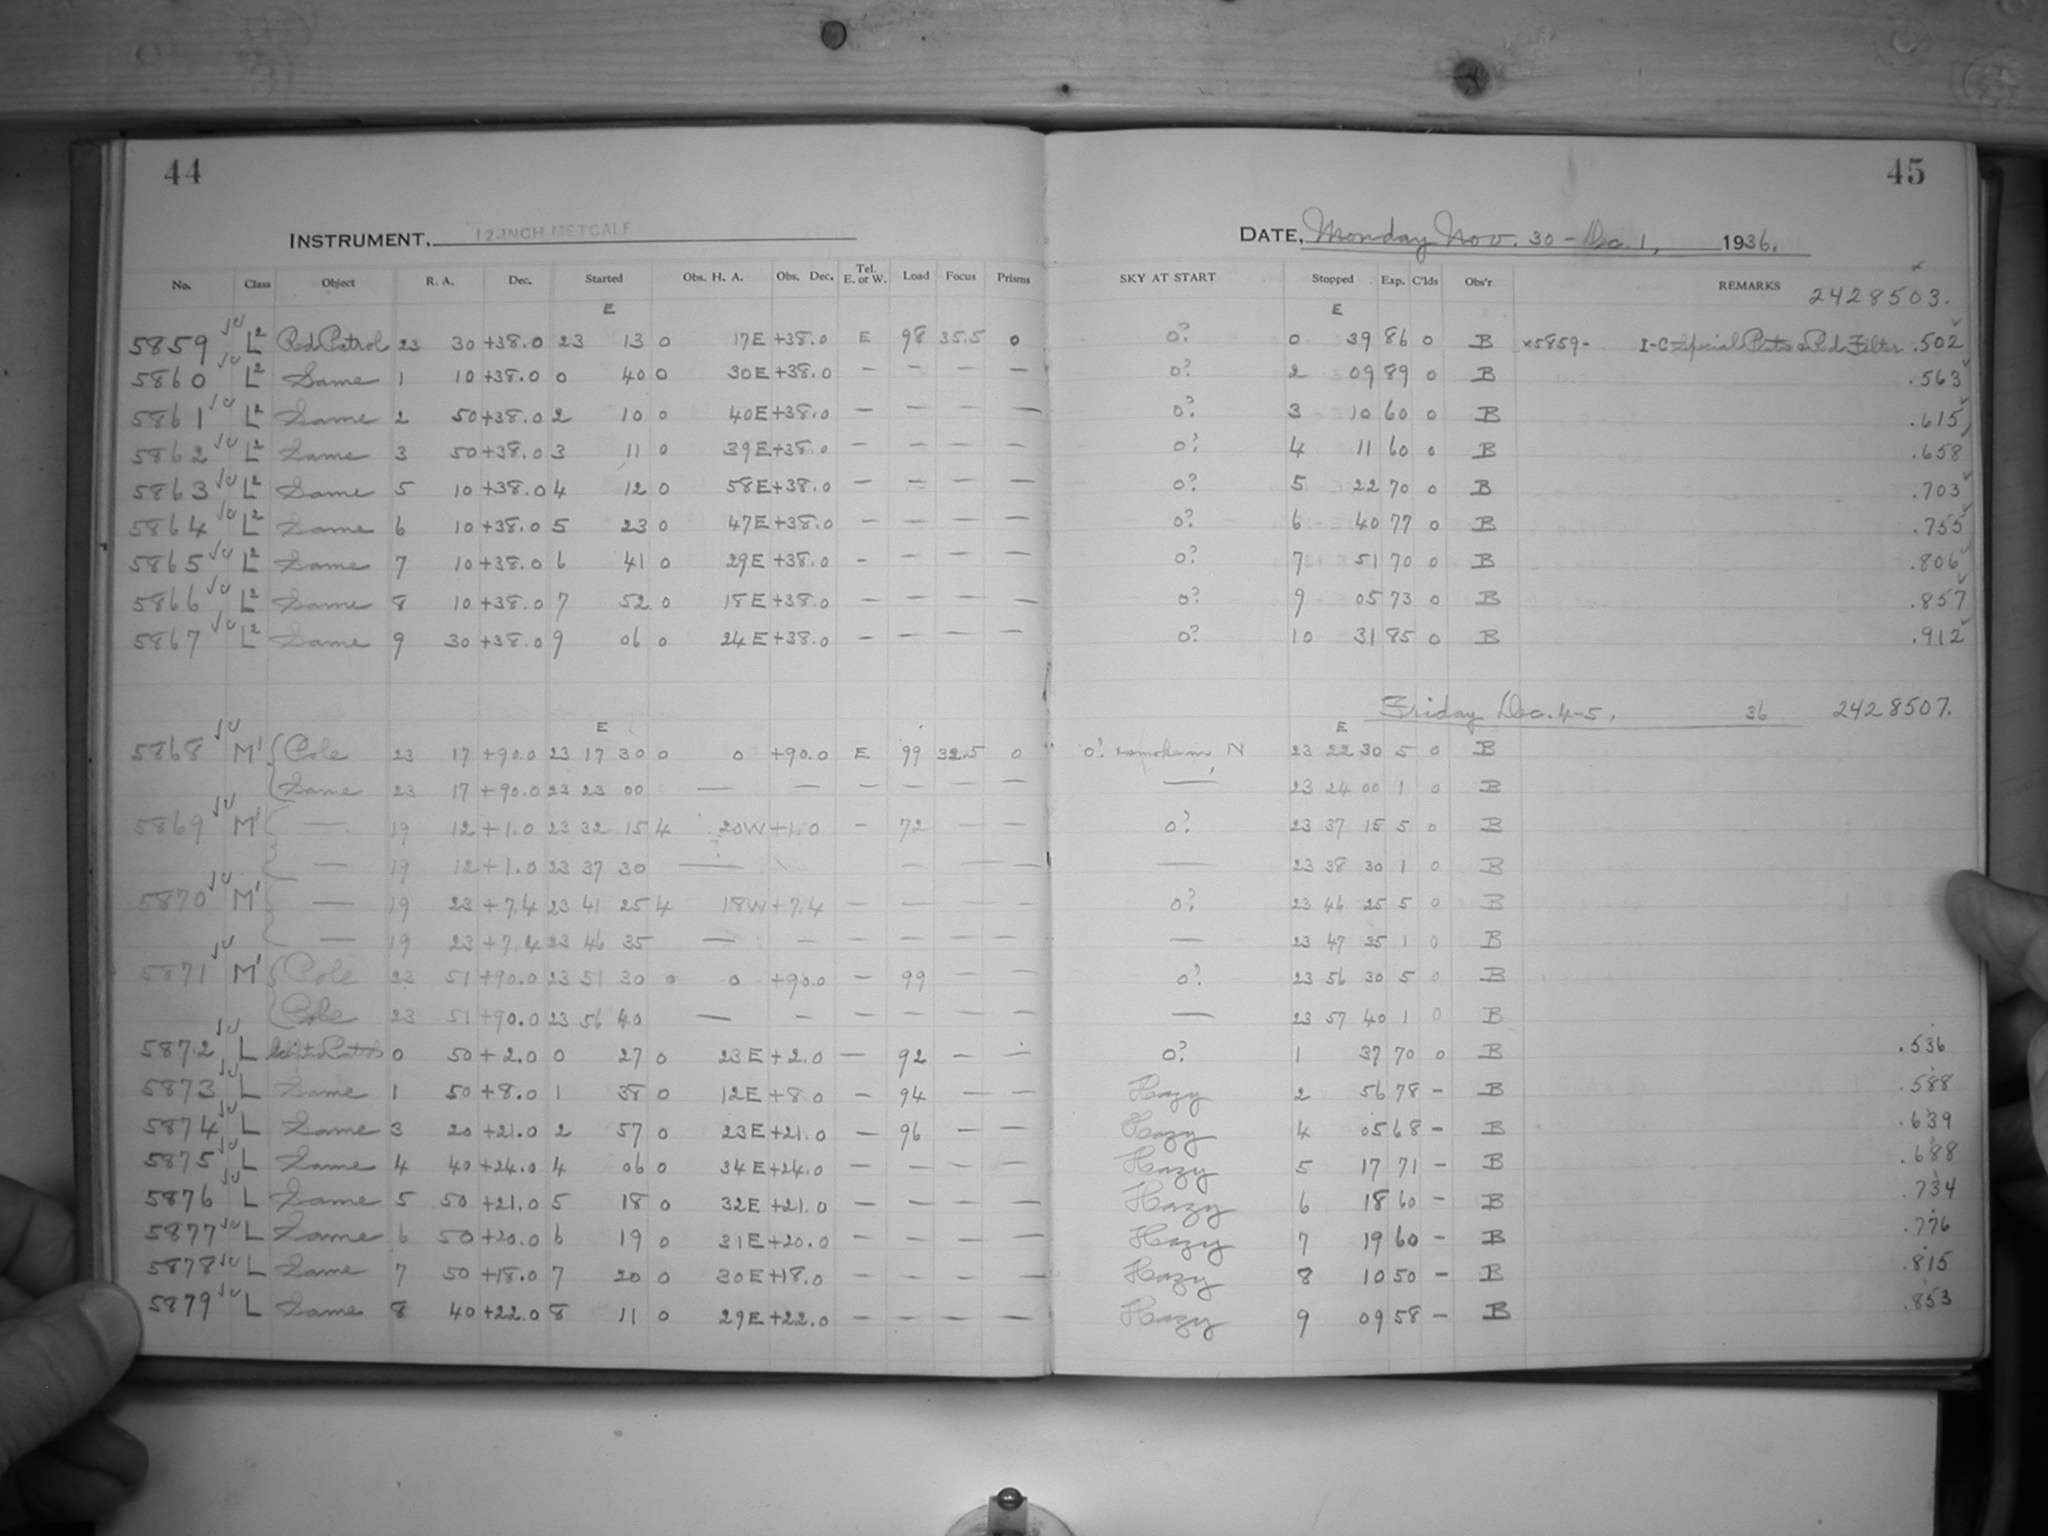 44
45
INSTRUMENT, 12-INCH METCALF
DATE, Monday Nov. 30 - Dec. 1, 1936.
No. Class Object R. A. Dec. Started Obs. H. A. Obs. Dec. Tel. E. or W. Load Focus Prisms SKY AT START Stopped Exp. C'lds Obs'r REMARKS
2428503.
E E
5859 L² Red Patrol 23 30 +38.0 23 13 0 17E +38.0 E 98 35.5 0 0? 0 39 86 0 B x5859- I-C Special Plates & Red Filter .502
5860 L² Same 1 10 +38.0 0 40 0 30E +38.0 — — — — 0? 2 09 89 0 B .563
5861 L² Same 2 50 +38.0 2 10 0 40E +38.0 — — — — 0? 3 10 60 0 B .615
5862 L² Same 3 50 +38.0 3 11 0 39E +38.0 — — — — 0? 4 11 60 0 B .658
5863 L² Same 5 10 +38.0 4 12 0 58E +38.0 — — — — 0? 5 22 70 0 B .703
5864 L² Same 6 10 +38.0 5 23 0 47E +38.0 — — — — 0? 6 40 77 0 B .755
5865 L² Same 7 10 +38.0 6 41 0 29E +38.0 — — — — 0? 7 51 70 0 B .806
5866 L² Same 8 10 +38.0 7 52 0 18E +38.0 — — — — 0? 9 05 73 0 B .857
5867 L² Same 9 30 +38.0 9 06 0 24E +38.0 — — — — 0? 10 31 85 0 B .912
Friday Dec. 4-5, 36 2428507.
E E
5868 M' Pole 23 17 +90.0 23 17 30 0 0 +90.0 E 99 32.5 0 0? N 23 22 30 5 0 B
Same 23 17 +90.0 23 23 00 — — — — — — — 23 24 00 1 0 B
5869 M' — 19 12 +1.0 23 32 15 4 20W +1.0 — 72 — — 0? 23 37 15 5 0 B
— 19 12 +1.0 23 37 30 — — — — — 23 38 30 1 0 B
5870 M' — 19 23 +7.4 23 41 25 4 18W +7.4 — — — — 0? 23 46 25 5 0 B
— 19 23 +7.4 23 46 35 — — — — — — — 23 47 35 1 0 B
5871 M' Pole 23 51 +90.0 23 51 30 0 0 +90.0 — 99 — — 0? 23 56 30 5 0 B
Pole 23 51 +90.0 23 56 40 — — — — — — — 23 57 40 1 0 B
5872 L Patrol 0 50 +2.0 0 27 0 23E +2.0 — 92 — — 0? 1 37 70 0 B .536
5873 L Same 1 50 +8.0 1 38 0 12E +8.0 — 94 — — Hazy 2 56 78 — B .588
5874 L Same 3 20 +21.0 2 57 0 23E +21.0 — 96 — — Hazy 4 05 68 — B .639
5875 L Same 4 40 +24.0 4 06 0 34E +24.0 — — — — Hazy 5 17 71 — B .688
5876 L Same 5 50 +21.0 5 18 0 32E +21.0 — — — — Hazy 6 18 60 — B .734
5877 L Same 6 50 +20.0 6 19 0 31E +20.0 — — — — Hazy 7 19 60 — B .776
5878 L Same 7 50 +18.0 7 20 0 30E +18.0 — — — — Hazy 8 10 50 — B .815
5879 L Same 8 40 +22.0 8 11 0 29E +22.0 — — — — Hazy 9 09 58 — B .853